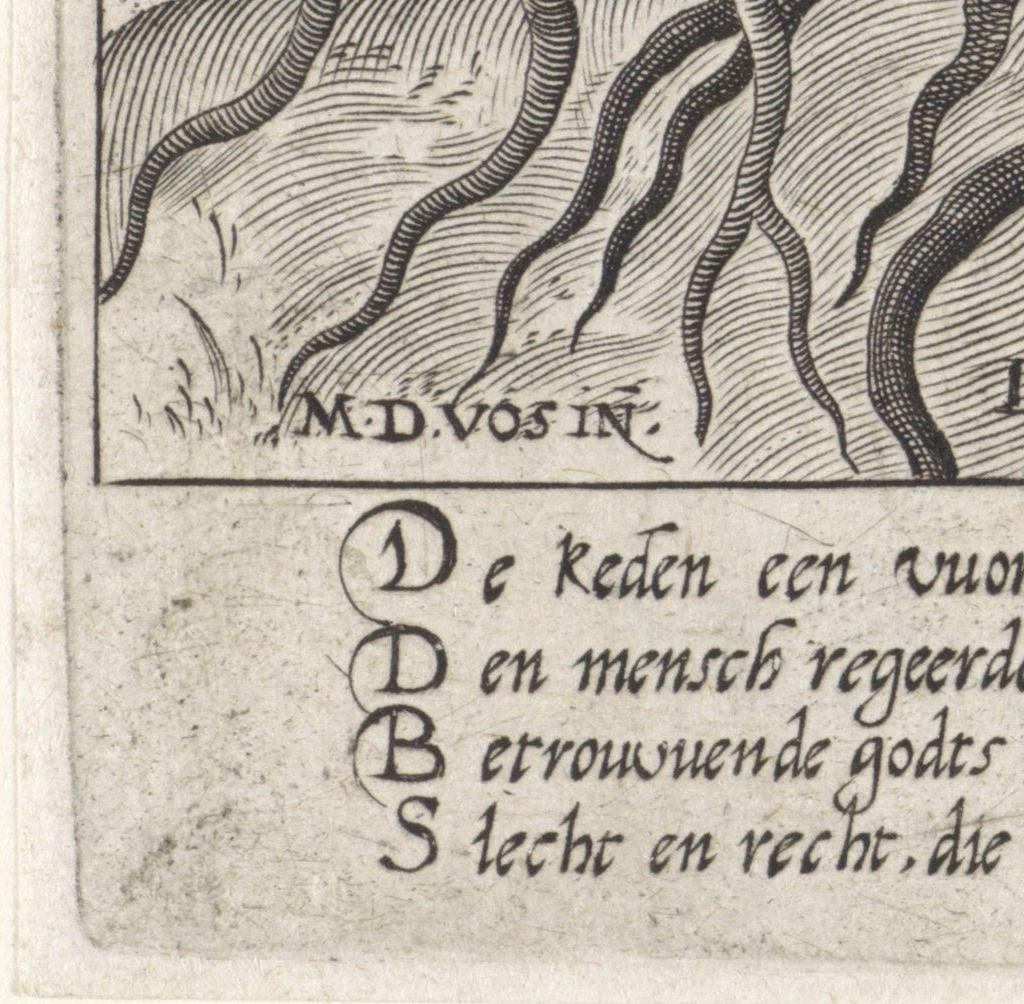 M·D.VOS IN.
De keden een vuor
Den mensch regeerde
Betrouwuende godts
Slecht en recht, die